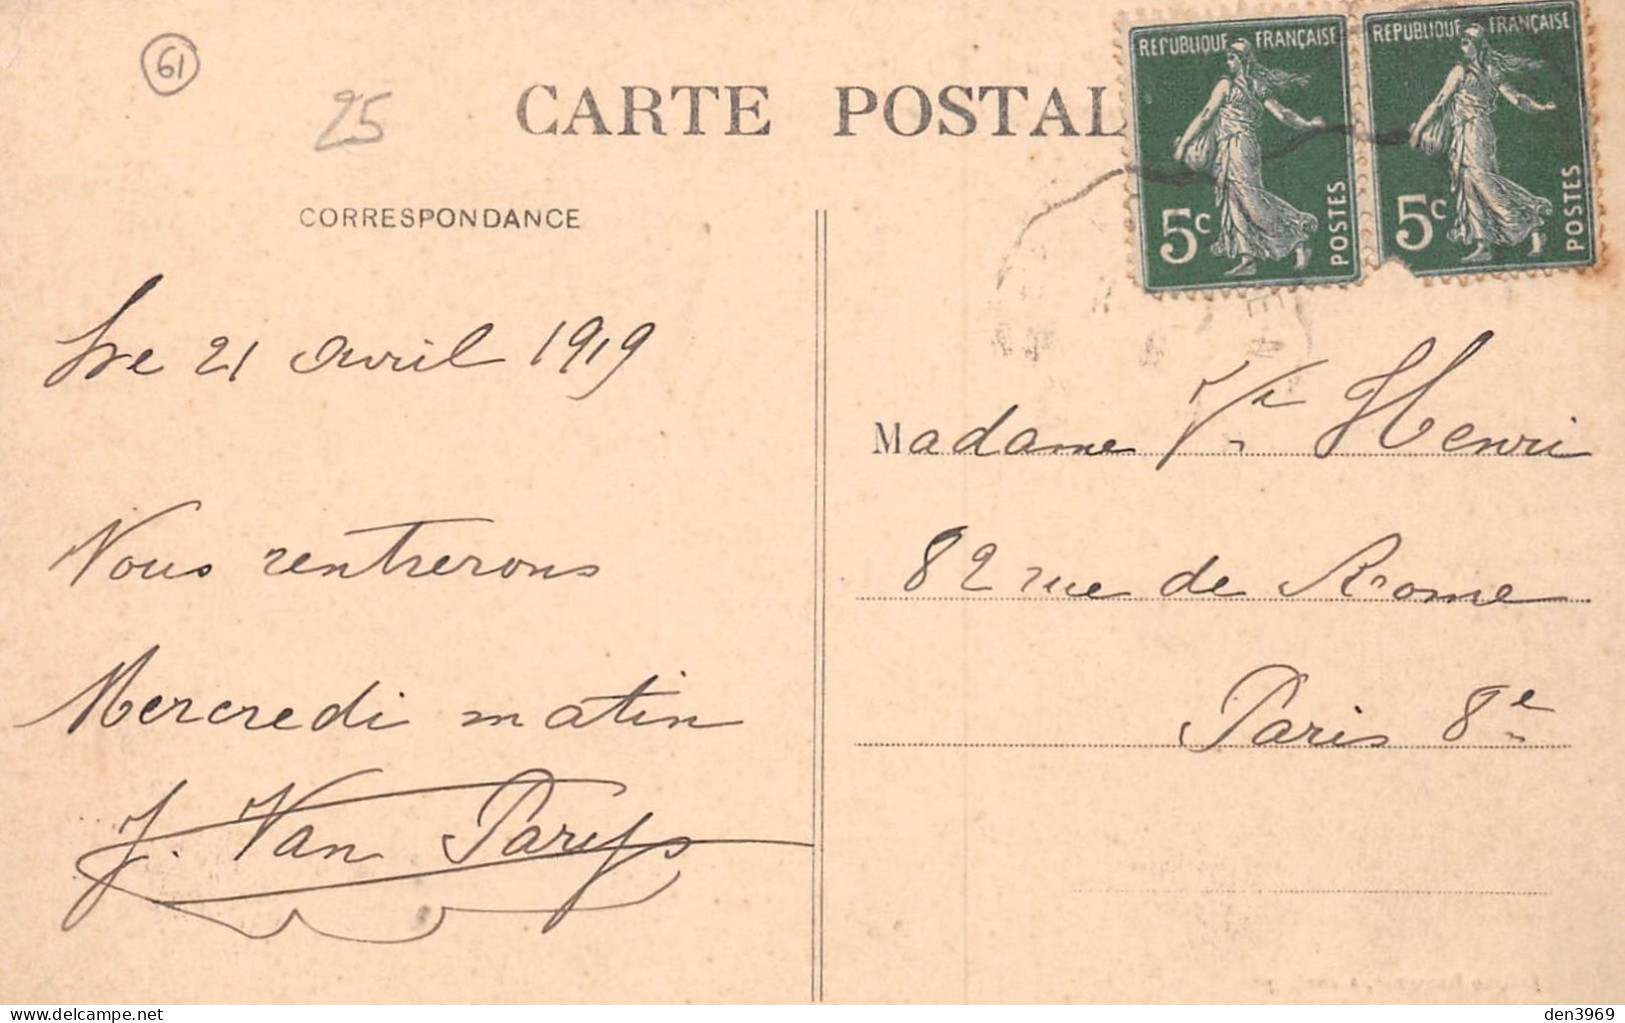 61
25
CARTE POSTAL
REPUBLIQUE FRANÇAISE
5c
POSTES
REPUBLIQUE FRANÇAISE
5c
POSTES
CORRESPONDANCE
Le 21 Avril 1919
Nous rentrerons
Mercredi matin
J. Van Parys
Madame Ve Henri
82 rue de Rome
Paris 8e
den3969